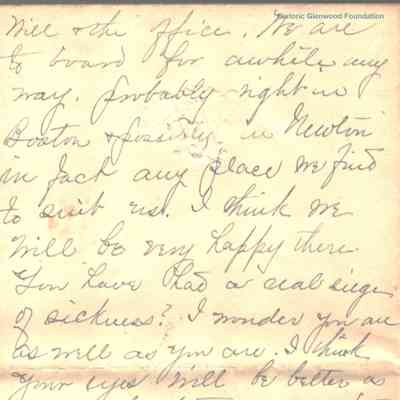 Historic Glenwood Foundation
Will & the office. We are
to board for awhile any
way. probably right in
Boston & possibly in Newton
in fact any place we find
to suit us. I think we
will be very happy there.
You have had a real siege
of sickness? I wonder you are
as well as you are. I think
your eyes will be better as